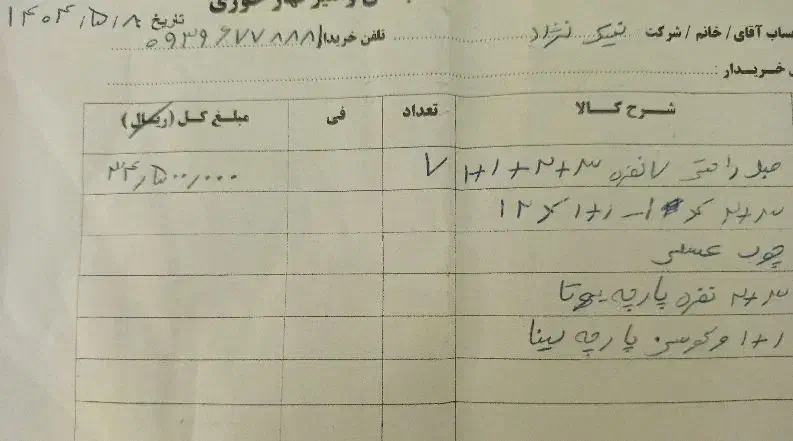 تاریخ ۱۴۰۴/۵/۸
ساب آقای / خانم / شرکت نیک نژاد تلفن خریدار ۰۹۳۹۶۷۷۸۸۸۱
خریدار :
شرح کالا تعداد فی مبلغ کل (ریال)
مبل راحتی ۷ نفره ۳+۲+۱+۱ ۷ ۳۴,۵۰۰,۰۰۰
۳+۲
چوب عسلی
۳+۲ نفره پارچه یوتا
۱+۱ و کوسن پارچه لینا